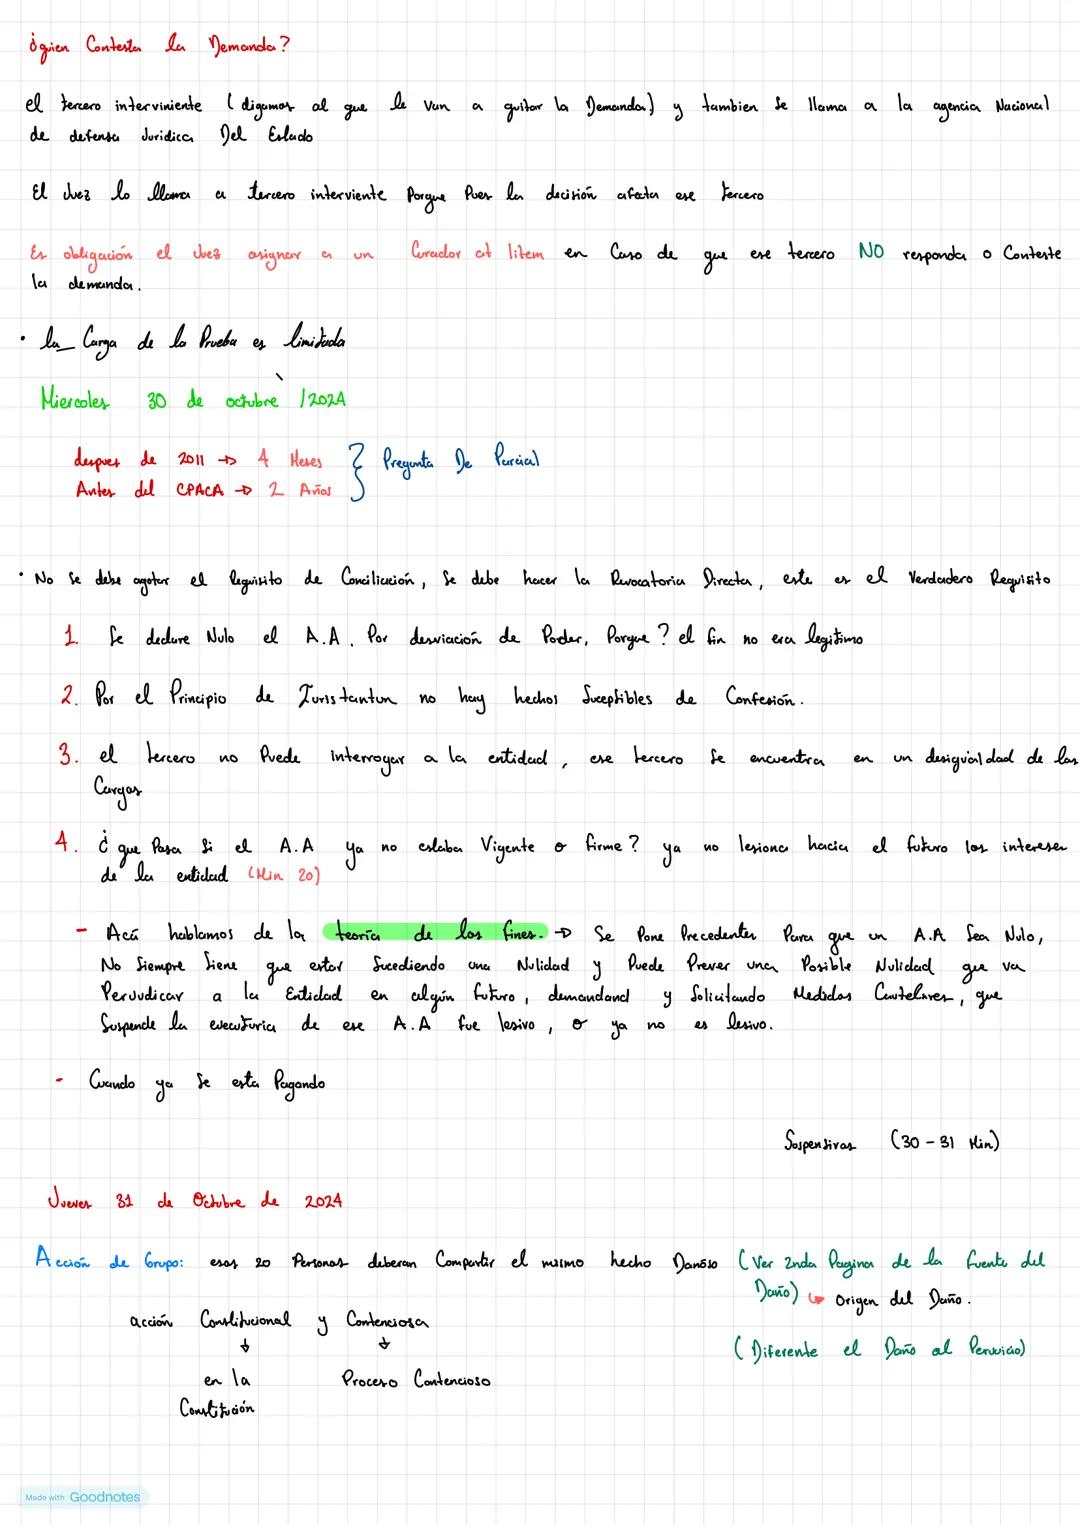 ¿quien Contesta la Demanda?
el tercero interviniente (digamos al que le van a quitar la Demanda) y tambien se llama a la agencia Nacional
de defensa Juridica Del Estado
El Juez lo llama a tercero interviente Porque Pues la decisión afecta ese tercero
Es obligación el Juez asignar a un Curador at litem en Caso de que ese tercero NO responda o Conteste
la demanda.
• la_ Carga de la Prueba es limitada
Miercoles 30 de octubre /2024
despues de 2011 → 4 Meses } Pregunta De Parcial
Antes del CPACA → 2 Años
• No se debe agotar el Requisito de Conciliación, Se debe hacer la Revocatoria Directa, este es el Verdadero Requisito
1. Se declare Nulo el A.A. Por desviación de Poder, Porque? el fin no era legitimo
2. Por el Principio de Iuris tantun no hay hechos Suceptibles de Confesión.
3. el tercero no Puede interrogar a la entidad, ese tercero Se encuentra en un desigualdad de las
Cargas
4. ¿que Pasa Si el A.A ya no estaba Vigente o firme? ya no lesiona hacia el futuro los intereses
de la entidad (Min 20)
- Acá hablamos de la teoría de los fines. → Se Pone Precedentes Para que un A.A Sea Nulo,
No Siempre tiene que estar Sucediendo una Nulidad y Puede Prever una Posible Nulidad que va
Perjudicar a la Entidad en algún futuro, demandand y Solicitando Medidas Cautelares, que
Suspende la ejecutoria de ese A.A fue lesivo, o ya no es lesivo.
- Cuando ya Se esta Pagando
Suspensivas (30 - 31 Min)
Jueves 31 de Octubre de 2024
Acción de Grupo: esas 20 Personas deberan Compartir el mismo hecho Dañoso (Ver 2nda Pagina de la fuente del
Daño) ↳ Origen del Daño.
acción Constitucional y Contenciosa
(Diferente el Daño al Perjuicio)
↓ ↓
en la Proceso Contencioso
Constitución
Made with Goodnotes